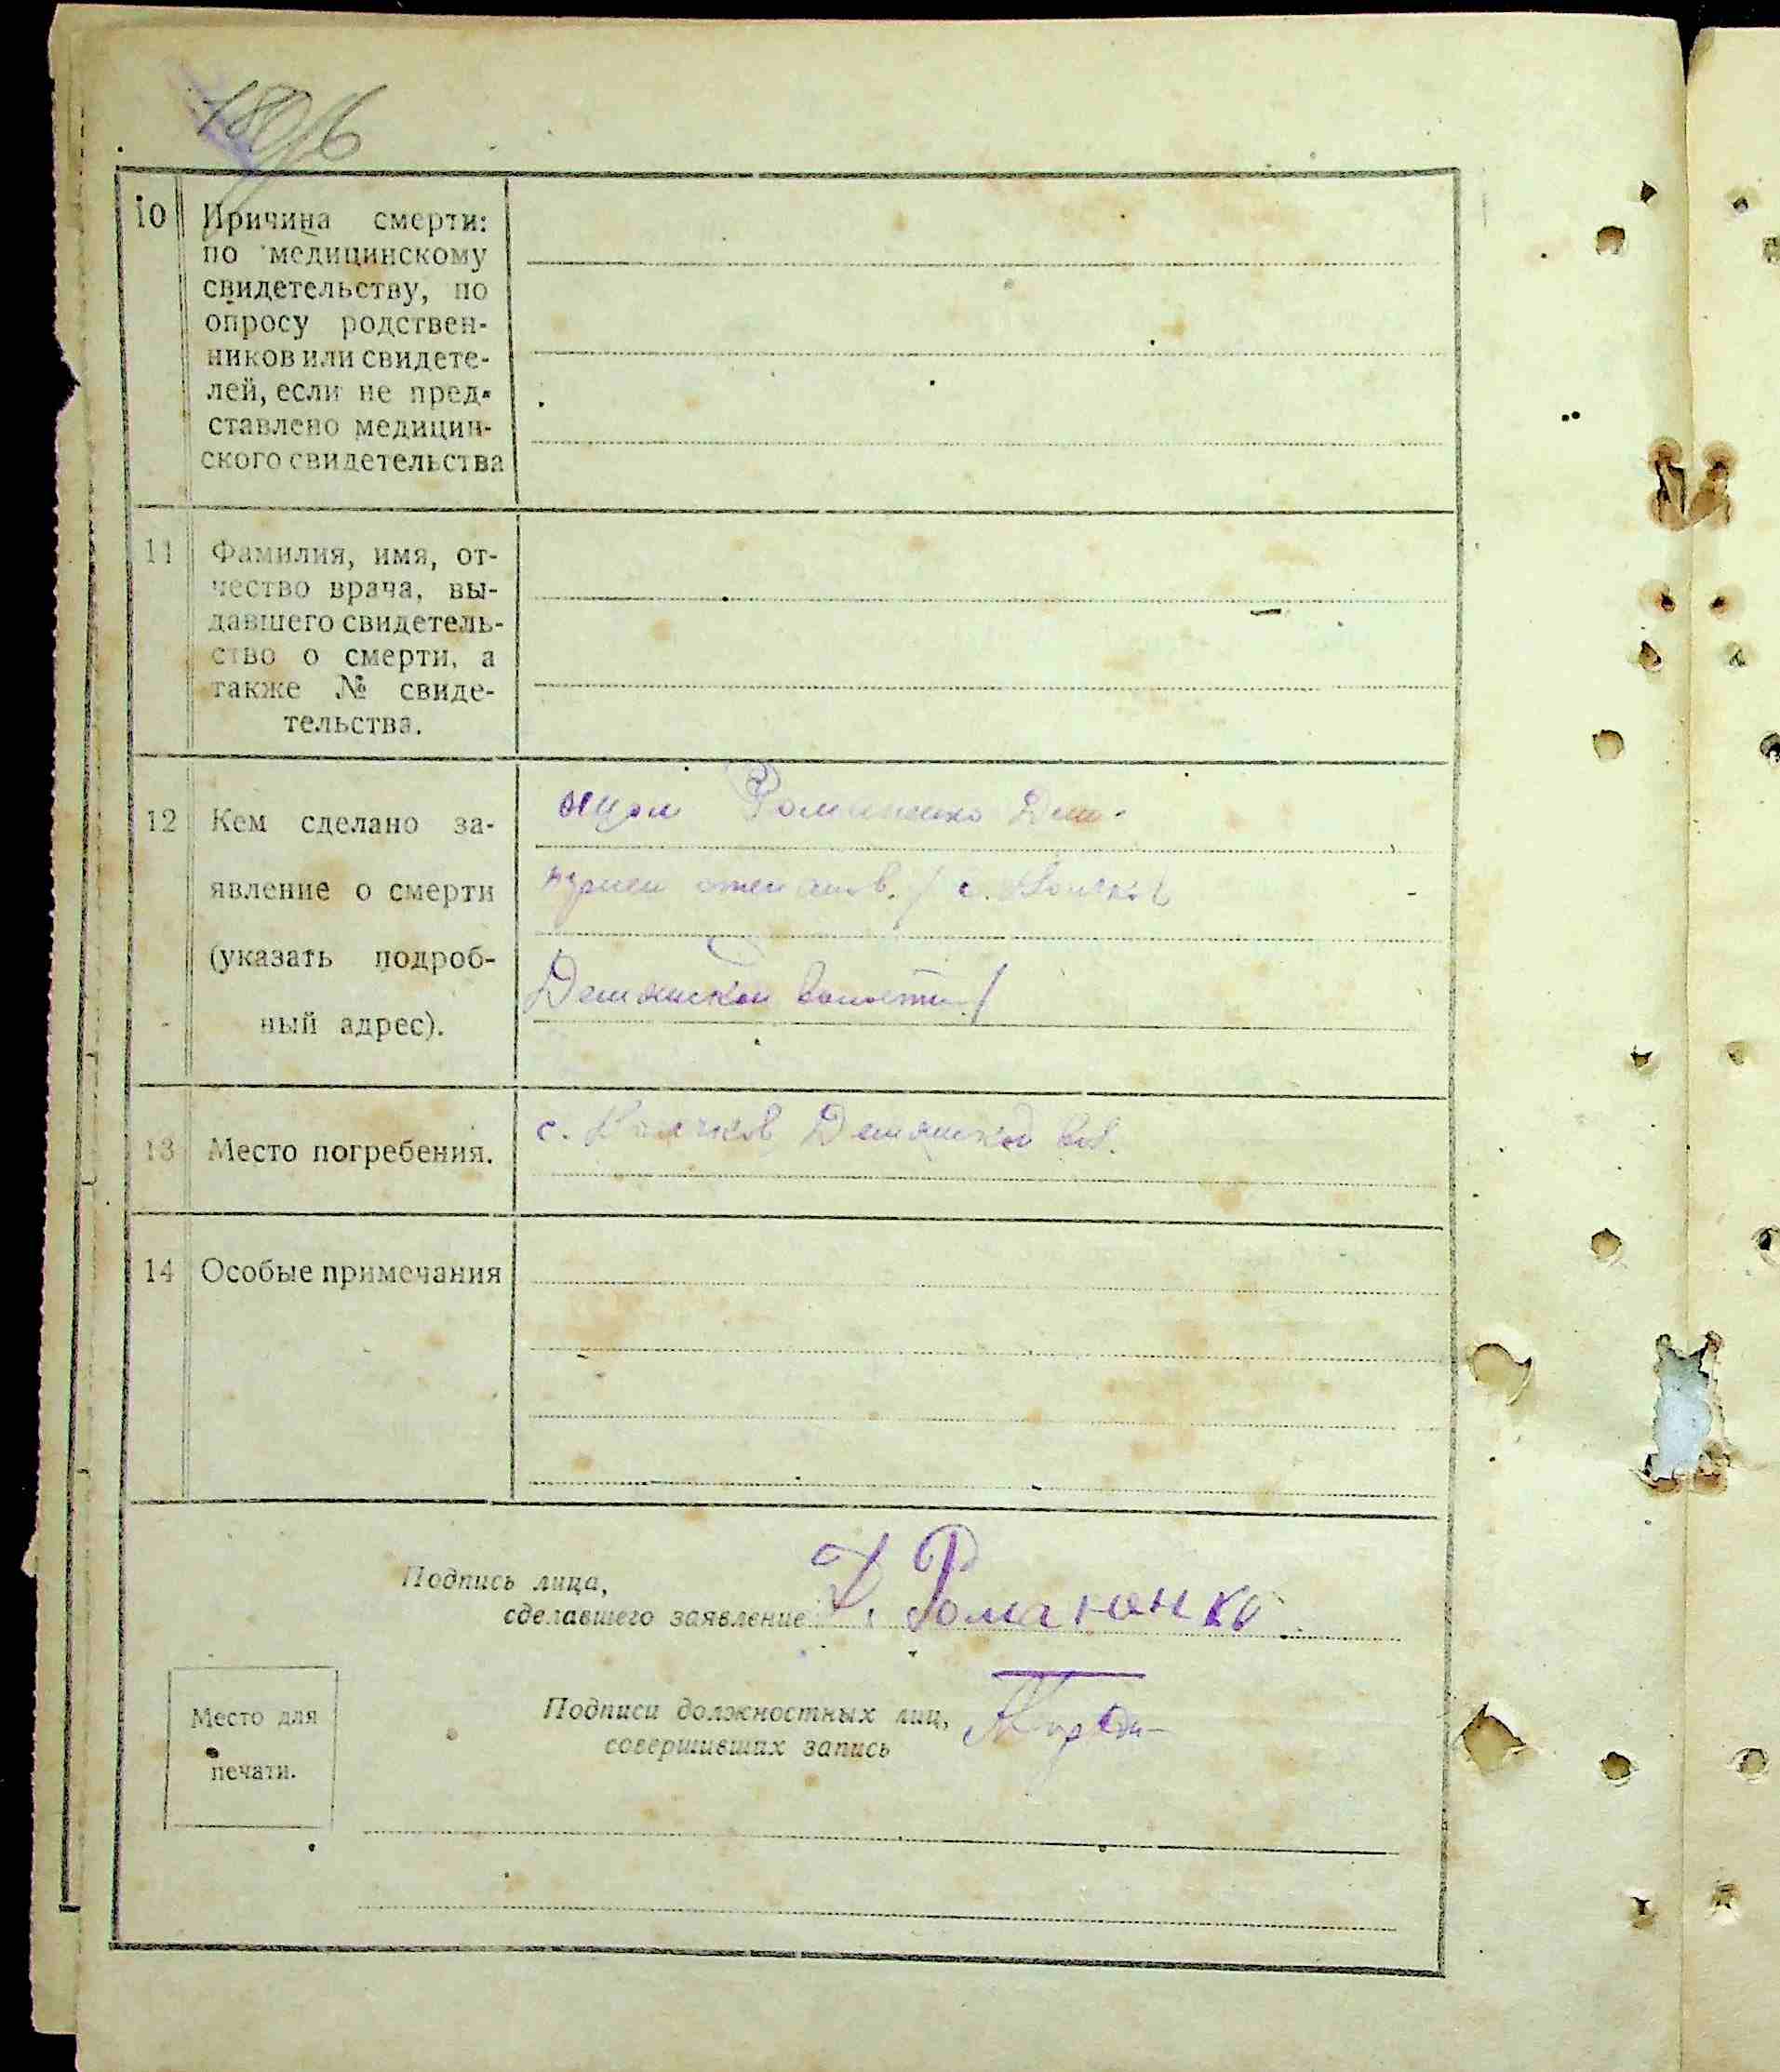 10 Причина смерти:
по медицинскому
свидетельству, по
опросу родствен-
ников или свидете-
лей, если не пред-
ставлено медицин-
ского свидетельства
11 Фамилия, имя, от-
чество врача, вы-
давшего свидетель-
ство о смерти, а
также № свиде-
тельства.
12 Кем сделано за-
явление о смерти
(указать подроб-
ный адрес).
Романенко
с.
13 Место погребения.
с.
14 Особые примечания
Подпись лица,
сделавшего заявление Д. Романенко
Место для
печати.
Подписи должностных лиц,
совершивших запись